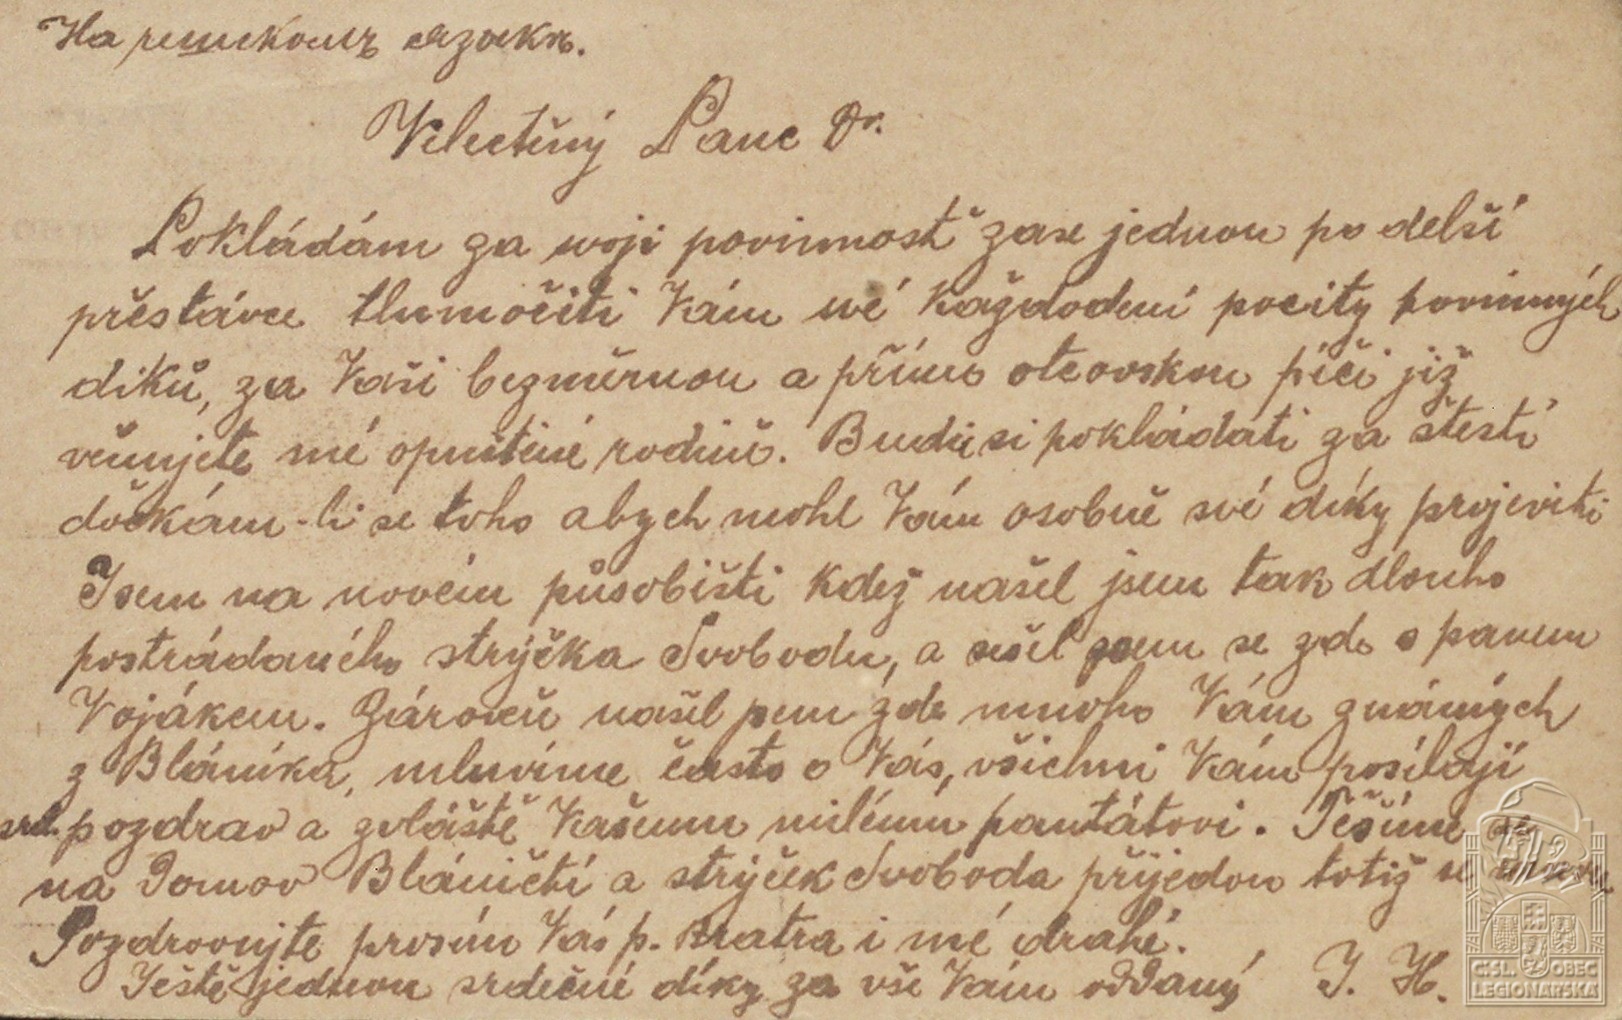 На чешскомъ языкѣ.
Velectěný Pane Dr.
Pokládám za svoji povinnost zase jednou po delší
přestávce tlumočiti Vám své každodení pocity povinných
díků, za Vaši bezměrnou a přímo otcovskou péči již
věnujete mé opuštěné rodině. Budu si pokládati za štěstí
dočkám-li se toho abych mohl Vám osobně své díky projeviti
Jsem na novém působišti kdež našel jsem tak dlouho
postrádaného strýčka Svobodu, a sešel jsem se zde s panem
Vojákem. Zároveň našel jsem zde mnoho Vám známých
z Blaníka, mluvíme často o Vás, všichni Vám posílají
srd. pozdrav a zvláště Vašemu milému pantátovi. Těšíme se
na Domov Bláničtí a strýček Svoboda přijedou totiž se
Pozdravujte prosím Vás p. Bratra i mé drahé.
Ještě jednou srdečné díky za vše Vám oddaný J. H.
ČSL. OBEC
LEGIONÁŘSKÁ